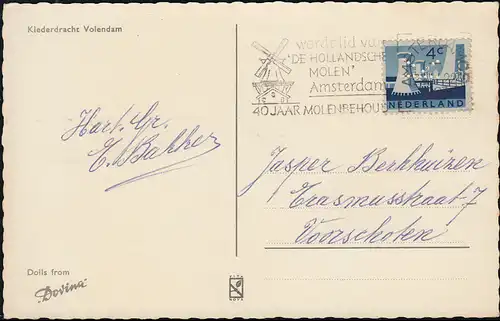 Klederdracht Volendam
wordt lid van
"DE HOLLANDSCHE
MOLEN"
Amsterdam
40 JAAR MOLENBEHOUD
4c
NEDERLAND
Hart. Gr.
E. Bakker
Jasper Berkhuizen
Erasmusstraat 7
Voorschoten
Dolls from
"Dovina"